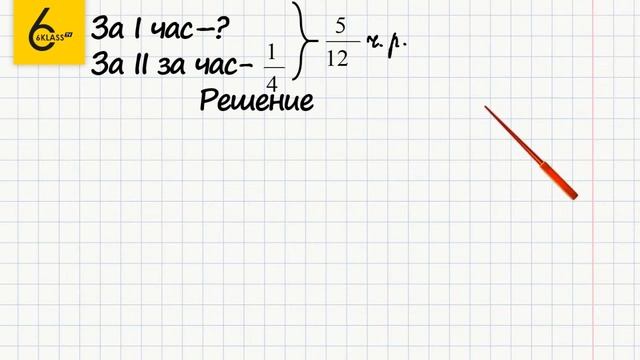 6KLASS TV
За I час–? } – 5/12 ч. р.
За II за час- 1/4
Решение